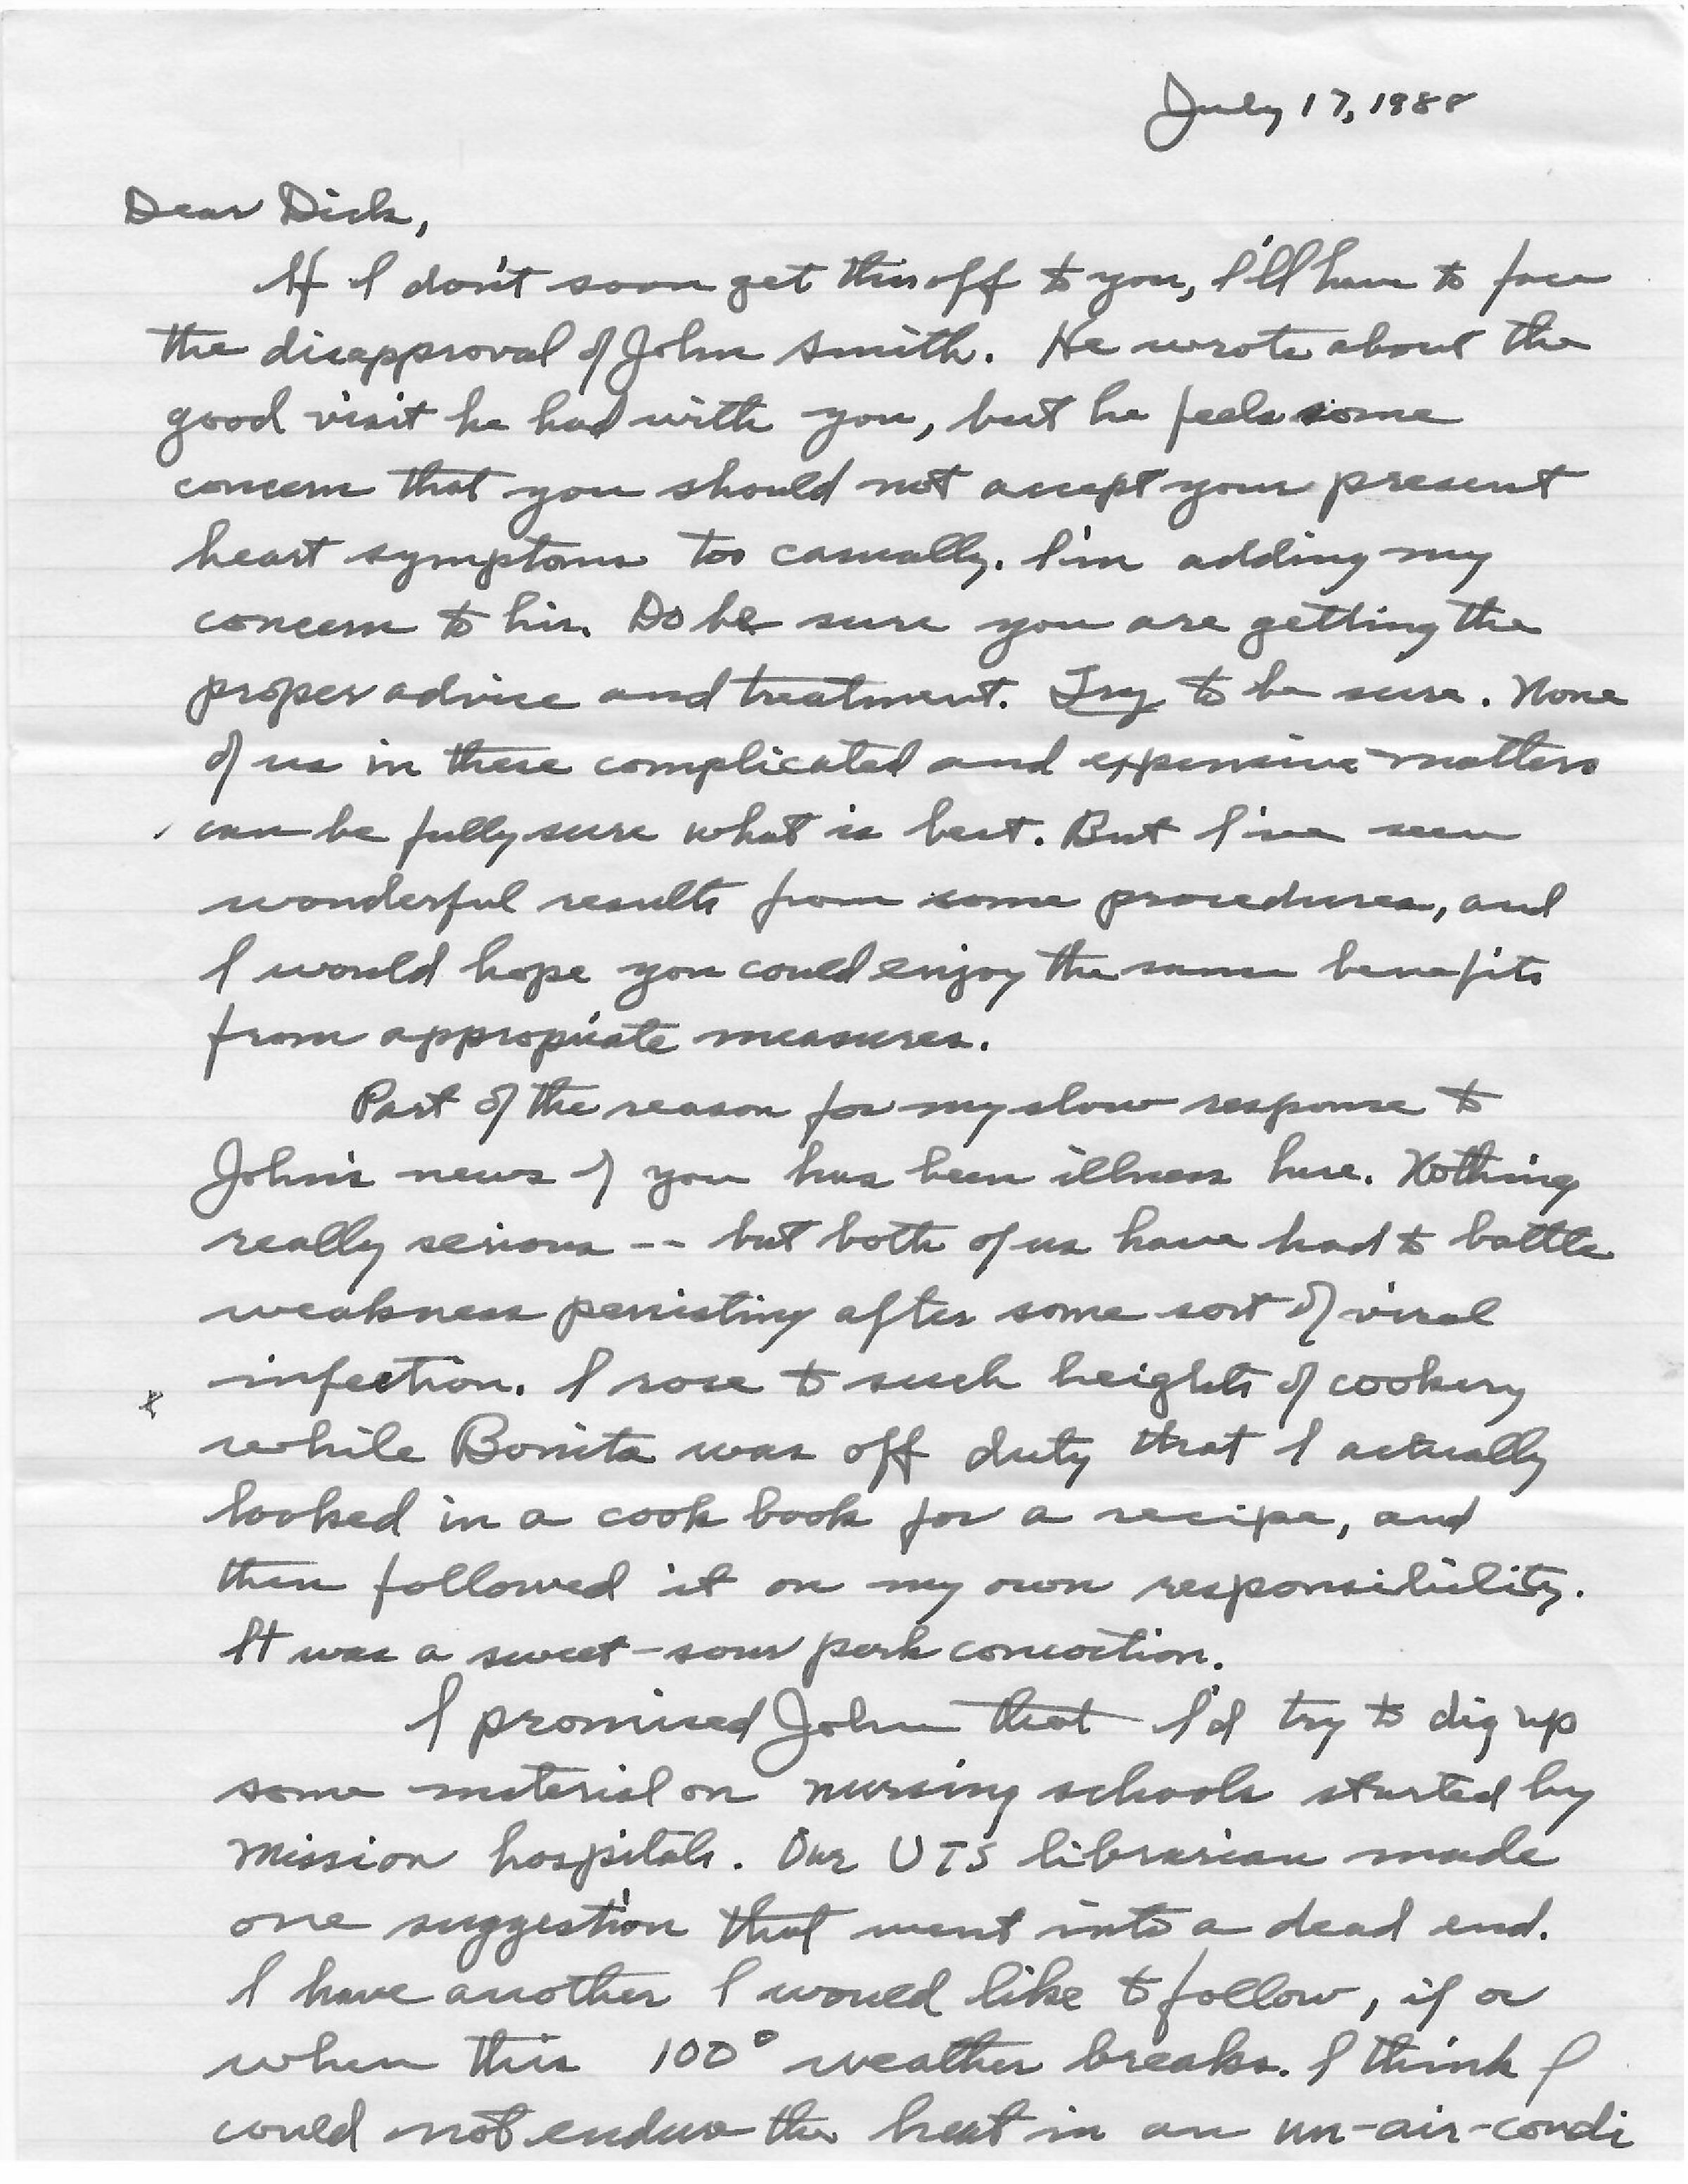 July 17, 1988
Dear Dick,
If I don't soon get this off to you, I'll have to face
the disapproval of John Smith. He wrote about the
good visit he had with you, but he feels some
concern that you should not accept your present
heart symptoms too casually. I'm adding my
concern to his. Do be sure you are getting the
proper advice and treatment. Try to be sure. None
of us in these complicated and expensive matters
can be fully sure what is best. But I've seen
wonderful results from some procedures, and
I would hope you could enjoy the same benefits
from appropriate measures.
Part of the reason for my slow response to
John's news of you has been illness here. Nothing
really serious -- but both of us have had to battle
weakness persisting after some sort of viral
infection. I rose to such heights of cookery
while Bonita was off duty that I actually
looked in a cook book for a recipe, and
then followed it on my own responsibility.
It was a sweet-sour pork concoction.
I promised John that I'd try to dig up
some material on nursing schools started by
mission hospitals. Our UTS librarian made
one suggestion that went into a dead end.
I have another I would like to follow, if or
when this 100° weather breaks. I think I
could not endure the heat in an un-air-condi